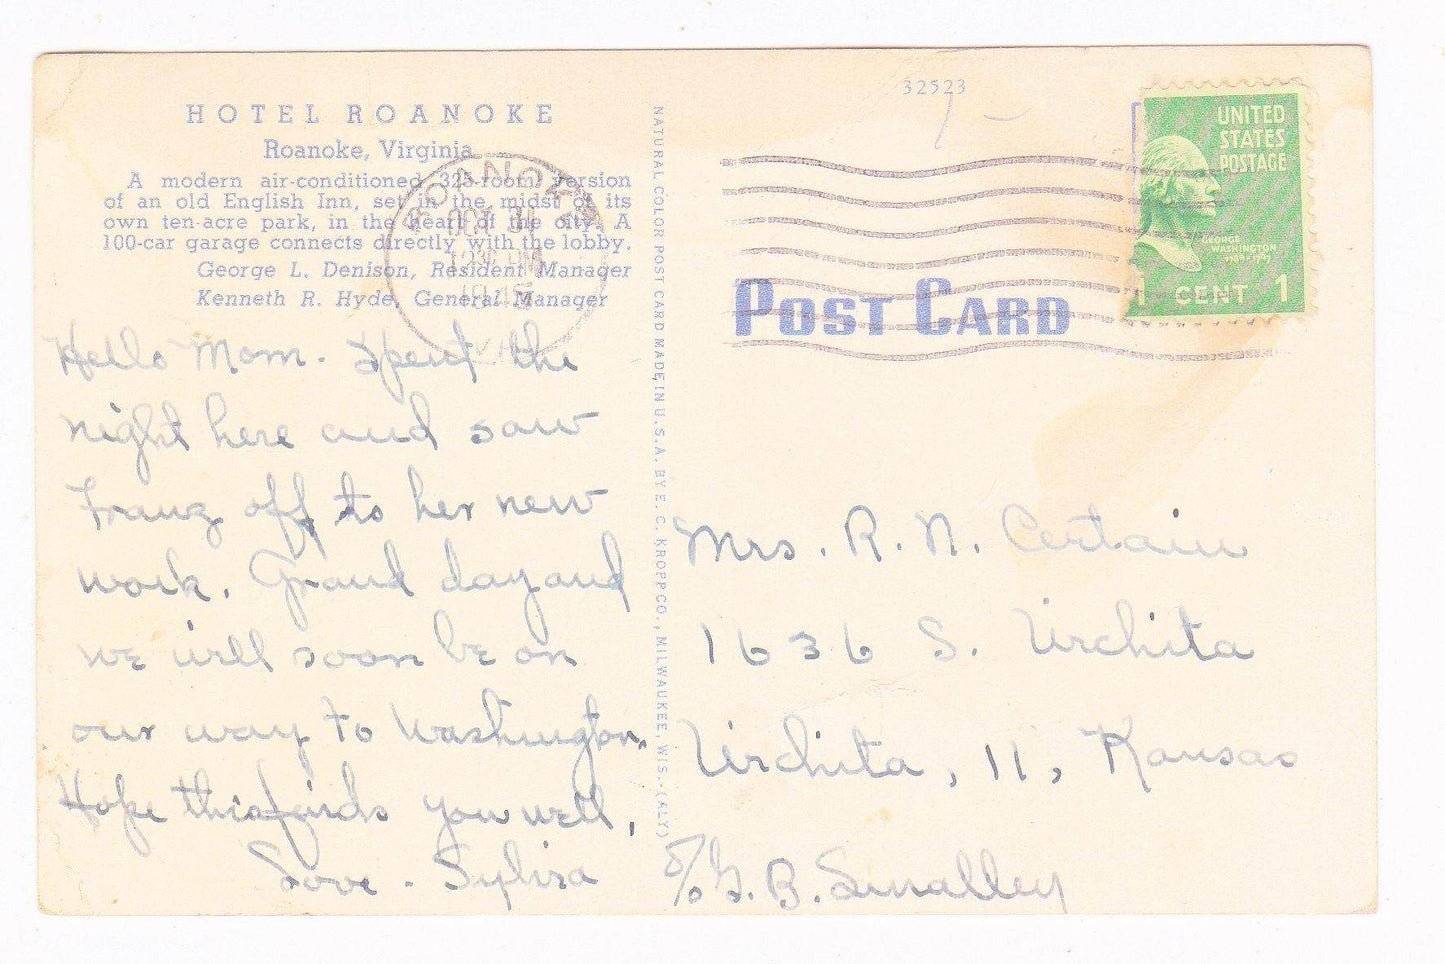 HOTEL ROANOKE
Roanoke, Virginia
A modern air-conditioned 325-room version
of an old English Inn, set in the midst of its
own ten-acre park, in the heart of the city. A
100-car garage connects directly with the lobby.
George L. Denison, Resident Manager
Kenneth R. Hyde, General Manager
ROANOKE
OCT 31
12 30 PM
VA.
Hello Mom. Spent the
night here and saw
Franz off to her new
work. Grand day and
we will soon be on
our way to Washington.
Hope this finds you well.
Love - Sylvia
NATURAL COLOR POST CARD MADE IN U.S.A. BY E. C. KROPP CO., MILWAUKEE, WIS.-(ALY)
32523
UNITED
STATES
POSTAGE
GEORGE
WASHINGTON
1789-1797
1 CENT 1
POST CARD
Mrs. R. N. Certain
1636 S. Wichita
Wichita, 11, Kansas
℅ G. B. Smalley